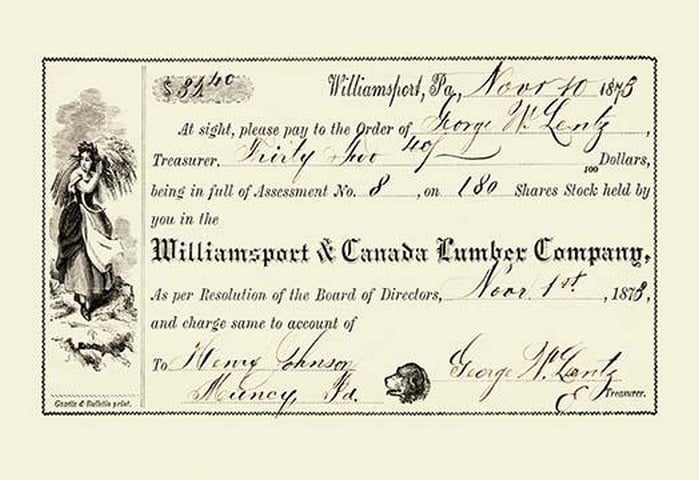 $32 40
Williamsport, Pa., Novr 10 1873
At sight, please pay to the Order of George W. Lentz,
Treasurer, Thirty Two 40/100 Dollars,
being in full of Assessment No. 8, on 180 Shares Stock held by
you in the
Williamsport & Canada Lumber Company,
As per Resolution of the Board of Directors, Novr 1st, 1873,
and charge same to account of
To Henry Johnson
George W. Lentz
Muncy, Pa.
Treasurer.
Gazette & Bulletin print.